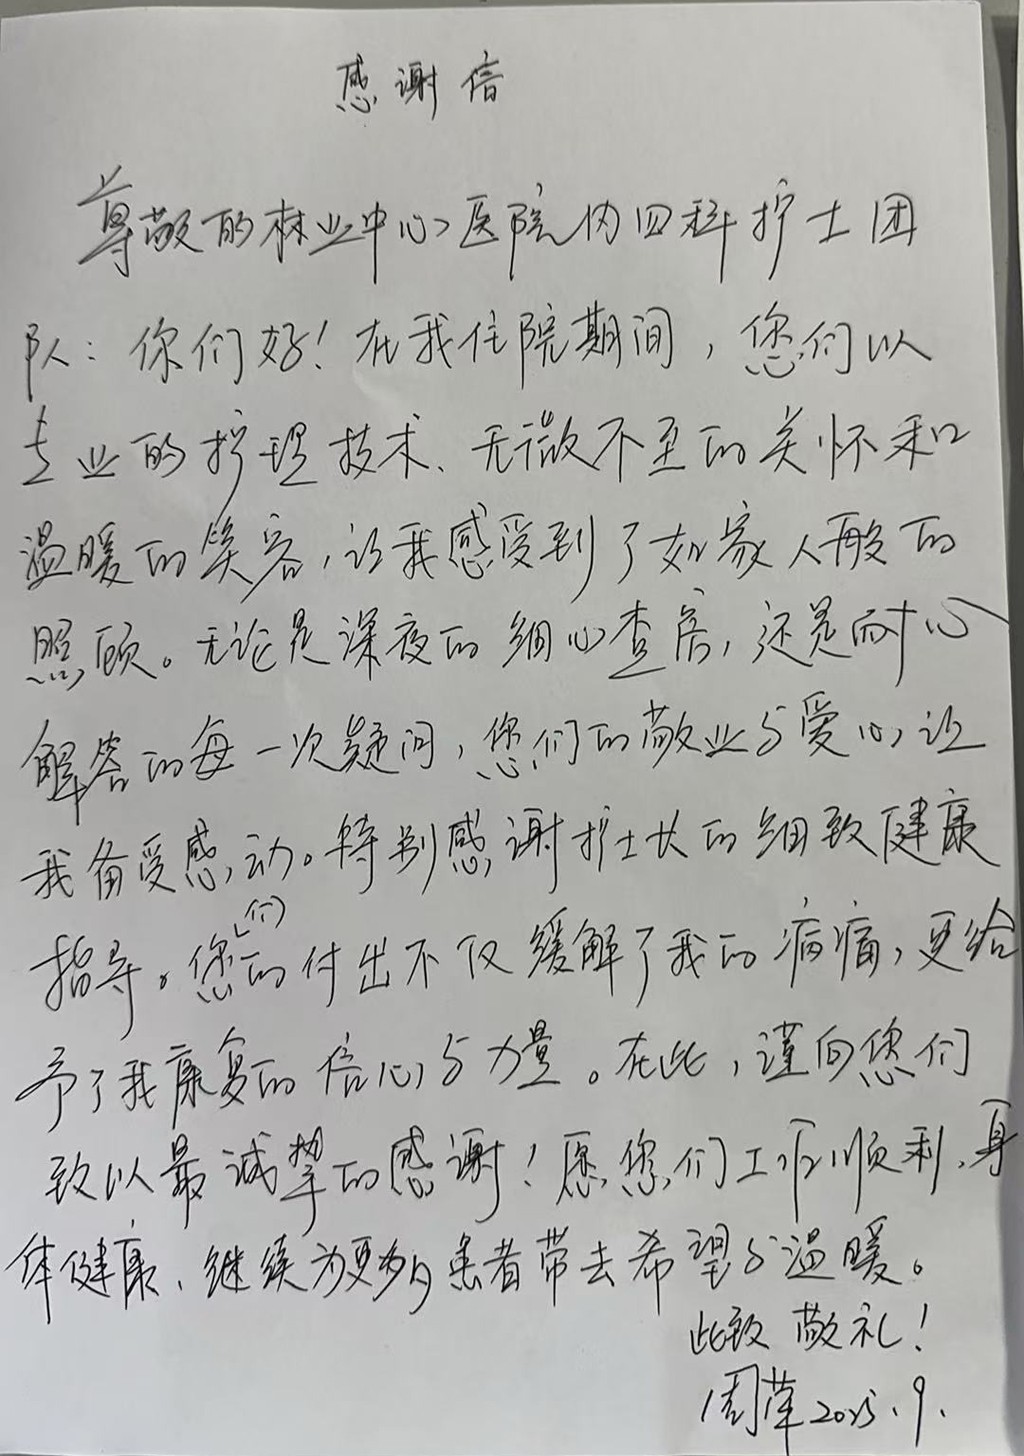 感谢信
尊敬的林业中心医院内四科护士团
队：你们好！在我住院期间，您们以
专业的护理技术、无微不至的关怀和
温暖的笑容，让我感受到了如家人般的
照顾。无论是深夜的细心查房，还是耐心
解答的每一次疑问，您们的敬业与爱心让
我备受感动。特别感谢护士长的细致健康
指导。您们的付出不仅缓解了我的病痛，更给
予了我康复的信心与力量。在此，谨向您们
致以最诚挚的感谢！愿您们工作顺利、身
体健康、继续为更多的患者带去希望与温暖。
此致 敬礼！
周 2025.9.